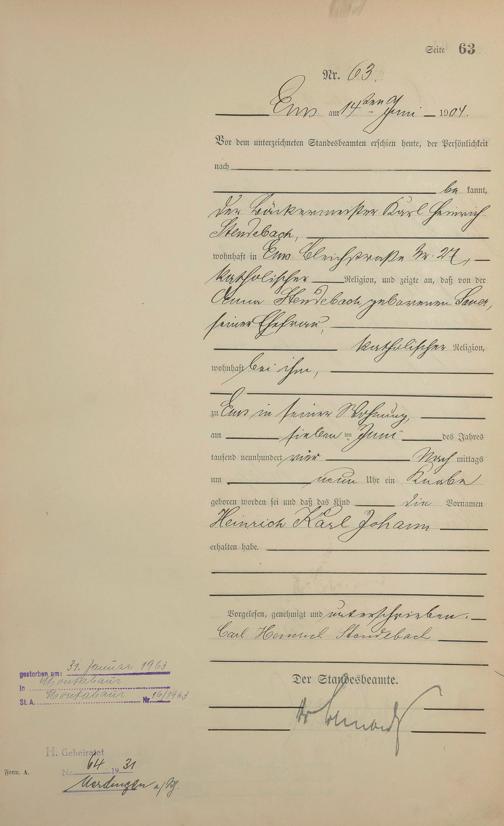 Seite 63
Nr. 63.
Ems am 14ten Juni 1904.
Vor dem unterzeichneten Standesbeamten erschien heute, der Persönlichkeit
nach
bekannt,
der Bäckermeister Karl Heinrich
Stendebach,
wohnhaft in Ems Bleichstraße Nr. 27,
katholischer Religion, und zeigte an, daß von der
Anna Stendebach geborenen Sauer,
seiner Ehefrau,
katholischer Religion,
wohnhaft bei ihm,
zu Ems in seiner Wohnung,
am sieben ten Juni des Jahres
tausend neunhundert vier Nach mittags
um neun Uhr ein Knabe
geboren worden sei und daß das Kind die Vornamen
Heinrich Karl Johann
erhalten habe.
Vorgelesen, genehmigt und unterschrieben.
Carl Heinrich Stendebach
Der Standesbeamte.
gestorben am: 31. Januar 1963
in Montabaur
St. A. Montabaur Nr. 16/1963
H. Geheiratet
Nr. 64 1931
Form. A.